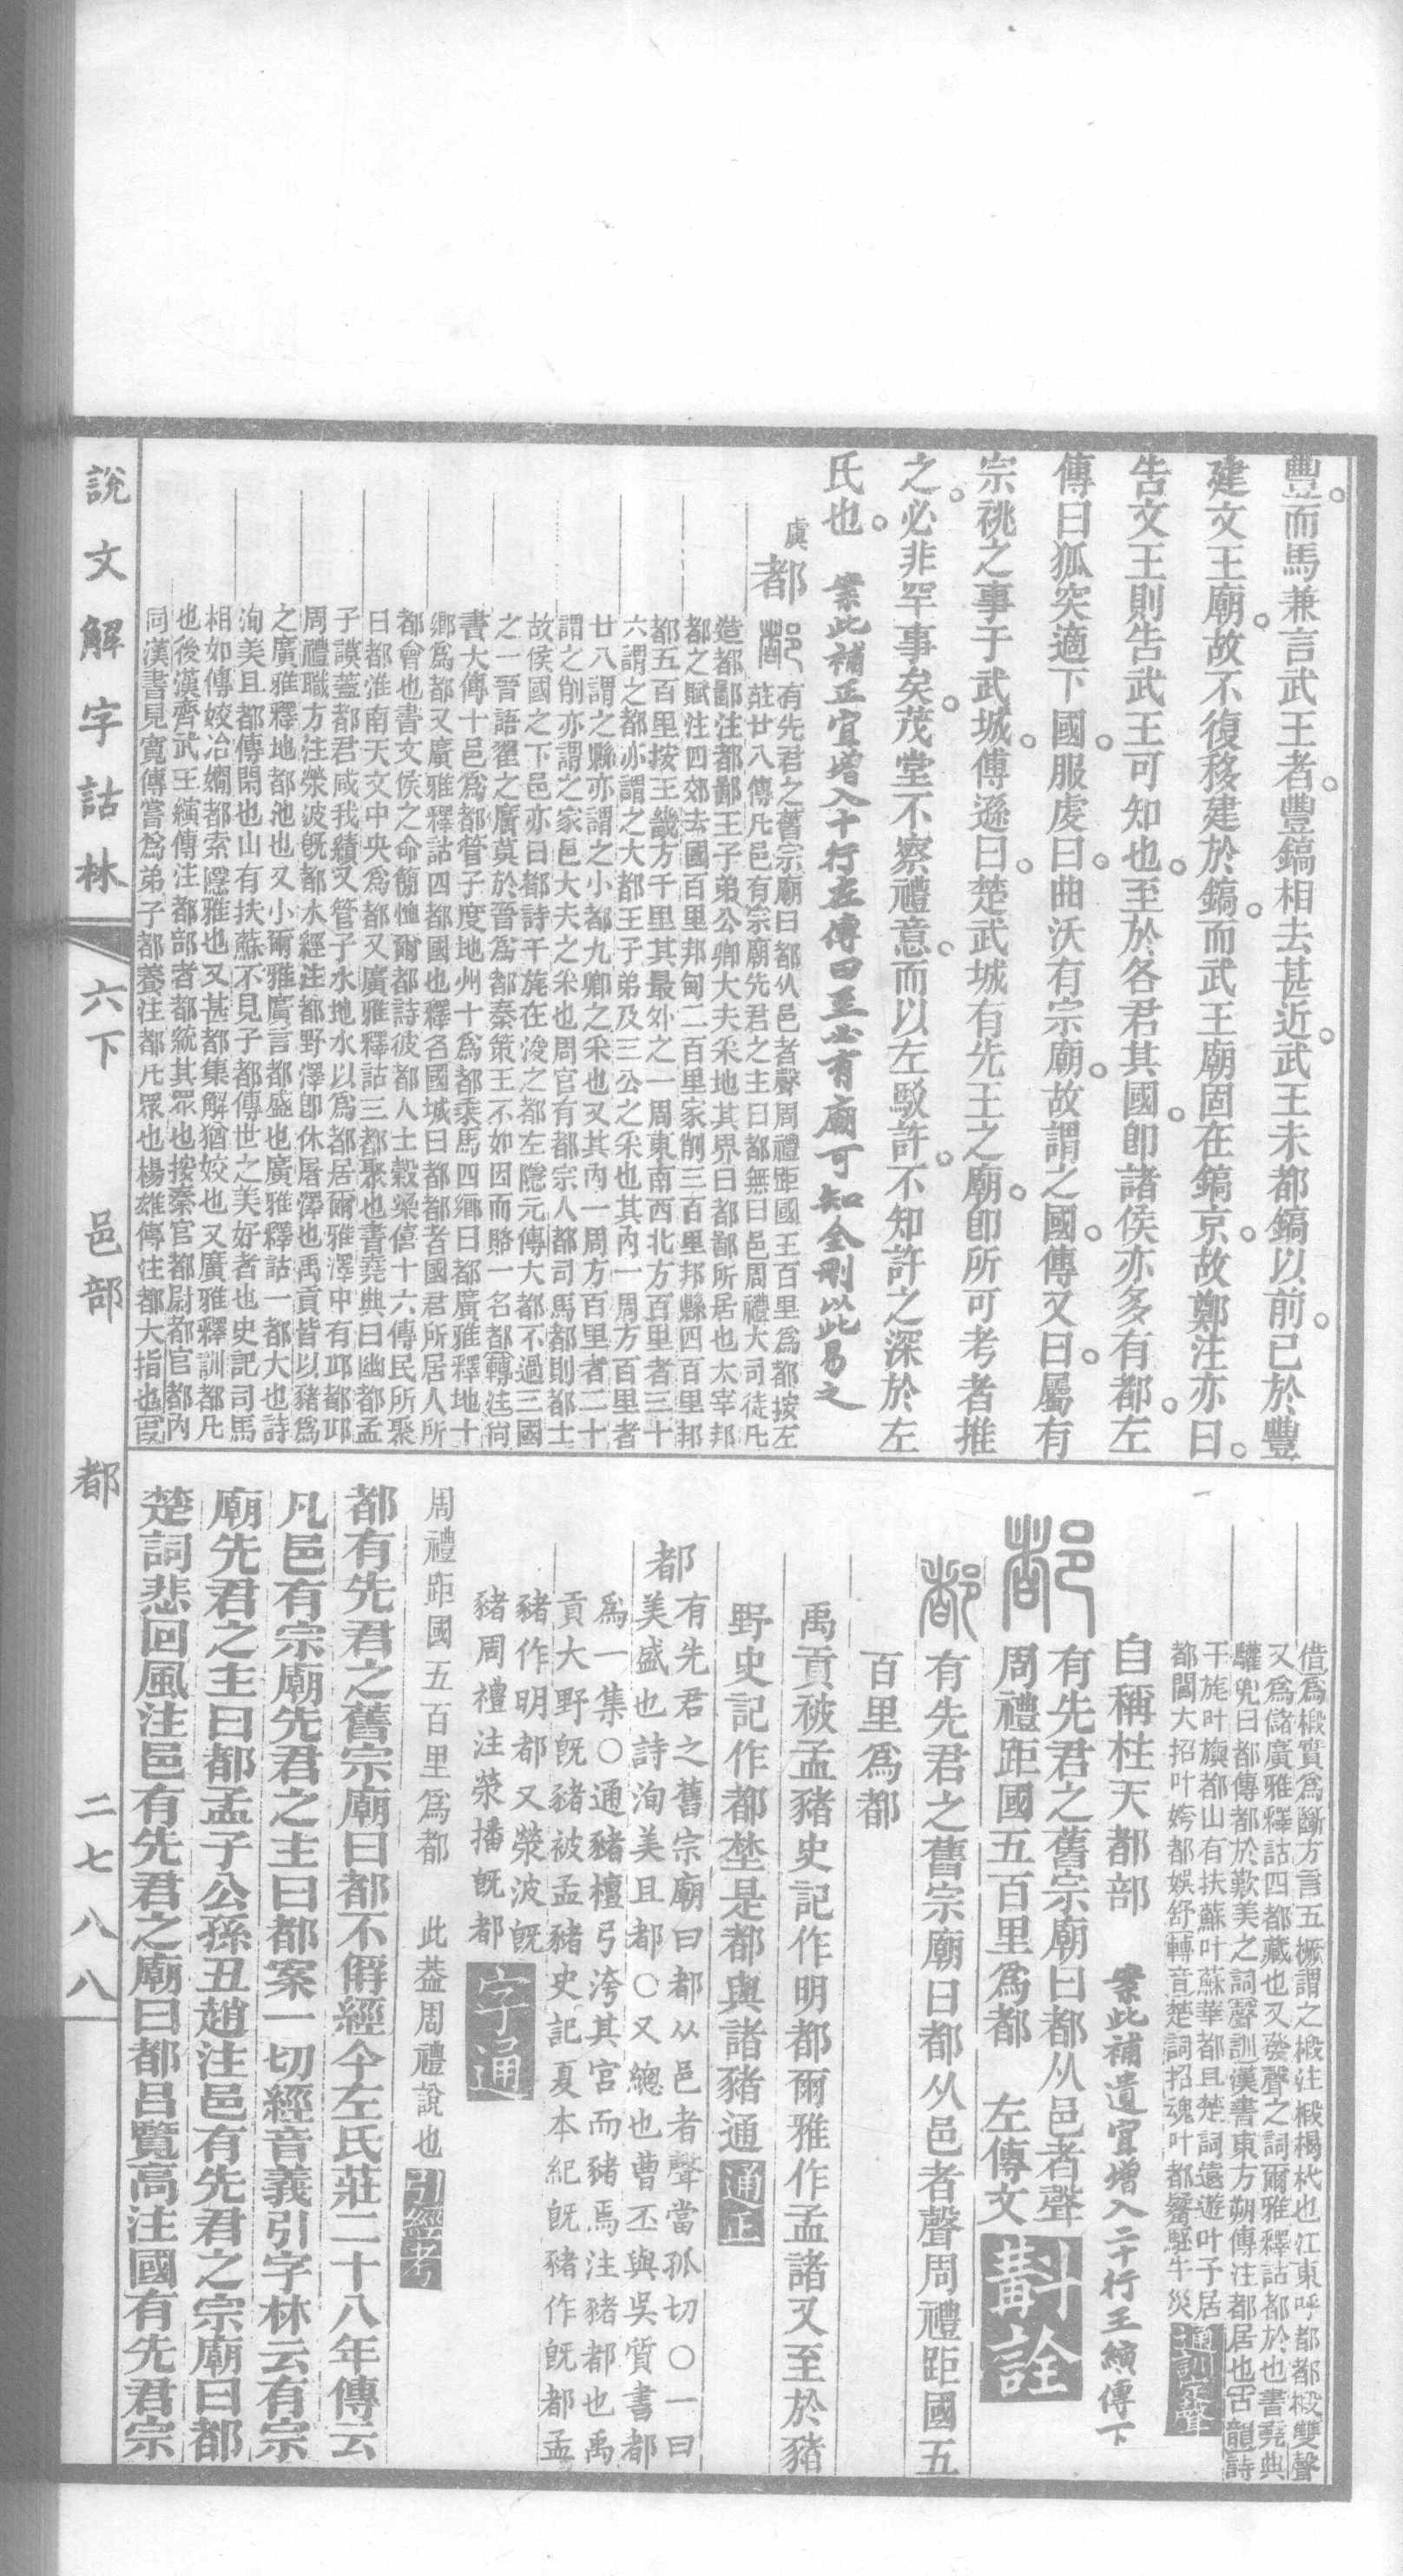 豐而馬兼言武王者豐鎬相去甚近武王未都鎬以前已於豐
建文王廟故不復移建於鎬而武王廟固在鎬京故鄭注亦曰
告文王則告武王可知也至於各君其國卽諸侯亦多有都左
傳曰狐突適下國服虔曰曲沃有宗廟故謂之國傳又曰屬有
宗祧之事于武城傅遜曰楚武城有先王之廟卽所可考者推
之必非罕事矣茂堂不察禮意而以左駁許不知許之深於左
氏也 案此補正宜增入十行左傳曰至必有廟可知全刪以此易之
虞 都
有先君之舊宗廟曰都从邑者聲周禮距國王百里爲都按左
莊廿八傳凡邑有宗廟先君之主曰都無曰邑周禮大司徒凡
造都鄙注都鄙王子弟公卿大夫采地其界曰都鄙所居也太宰邦
都之賦注四郊去國百里邦甸二百里家削三百里邦縣四百里邦
都五百里按王畿方千里其最外之一周東南西北方百里者三十
六謂之都亦謂之大都王子弟及三公之采也其內一周方百里者
廿八謂之縣亦謂之小都九卿之采也又其內一周方百里者二十
謂之削亦謂之家邑大夫之采也周官有都宗人都司馬都則都士
故侯國之下邑亦曰都詩干旄在浚之都左隱元傳大都不過三國
之一晉語翟之廣莫於晉爲都秦策王不如因而賂一名都轉注尙
書大傳十邑爲都管子度地州十爲都乘馬四鄉曰都廣雅釋地十
鄉爲都又廣雅釋詁四都國也釋名國城曰都都者國君所居人所
都會也書文侯之命簡恤爾都詩彼都人士穀梁僖十六傳民所聚
曰都淮南天文中央爲都又廣雅釋詁三都聚也書堯典曰幽都孟
子謨蓋都君咸我績又管子水地水以爲都居爾雅澤中有邱都邱
周禮職方注滎波旣都水經注都野澤卽休屠澤也禹貢皆以豬爲
之廣雅釋地都池也又小爾雅廣言都盛也廣雅釋詁一都大也詩
洵美且都傳閑也山有扶蘇不見子都傳世之美好者也史記司馬
相如傳姣冶嫺都索隱雅也又甚都集解猶姣也又廣雅釋訓都凡
也後漢齊武王縯傳注都部者都統其眾也按秦官都尉都官都內
同漢書見寬傳嘗爲弟子都養注都凡眾也楊雄傳注都大指也叚
借爲椴實爲斷方言五橛謂之椴注椴楬杙也江東呼都都椴雙聲
又爲儲廣雅釋詁四都藏也又發聲之詞爾雅釋詁都於也書堯典
驩兜曰都傳都於歎美之詞聲訓漢書東方朔傳注都居也古韻詩
干旄叶旟都山有扶蘇叶蘇華都且楚詞遠遊叶子居
都閭大招叶姱都娛舒轉音楚詞招魂叶都觺駓牛災 通訓定聲
自稱柱天都部 案此補遺宜增入二十行王縯傳下
有先君之舊宗廟曰都从邑者聲
周禮距國五百里爲都 左傳文 斠詮
有先君之舊宗廟曰都从邑者聲周禮距國五
百里爲都
禹貢被孟豬史記作明都爾雅作孟諸又至於豬
野史記作都埜是都與諸豬通 通正
都
有先君之舊宗廟曰都从邑者聲當孤切○一曰
美盛也詩洵美且都○又總也曹丕與吳質書都
爲一集○通豬檀弓洿其宮而豬焉注豬都也禹
貢大野旣豬被孟豬史記夏本紀旣豬作旣都孟
豬作明都又滎波旣
豬周禮注滎播旣都 字通
周禮距國五百里爲都 此葢周禮說也 引經考
都有先君之舊宗廟曰都不偁經今左氏莊二十八年傳云
凡邑有宗廟先君之主曰都案一切經音義引字林云有宗
廟先君之主曰都孟子公孫丑趙注邑有先君之宗廟曰都
楚詞悲回風注邑有先君之廟曰都呂覽高注國有先君宗
說文解字詁林 六下 邑部 都 二七八八